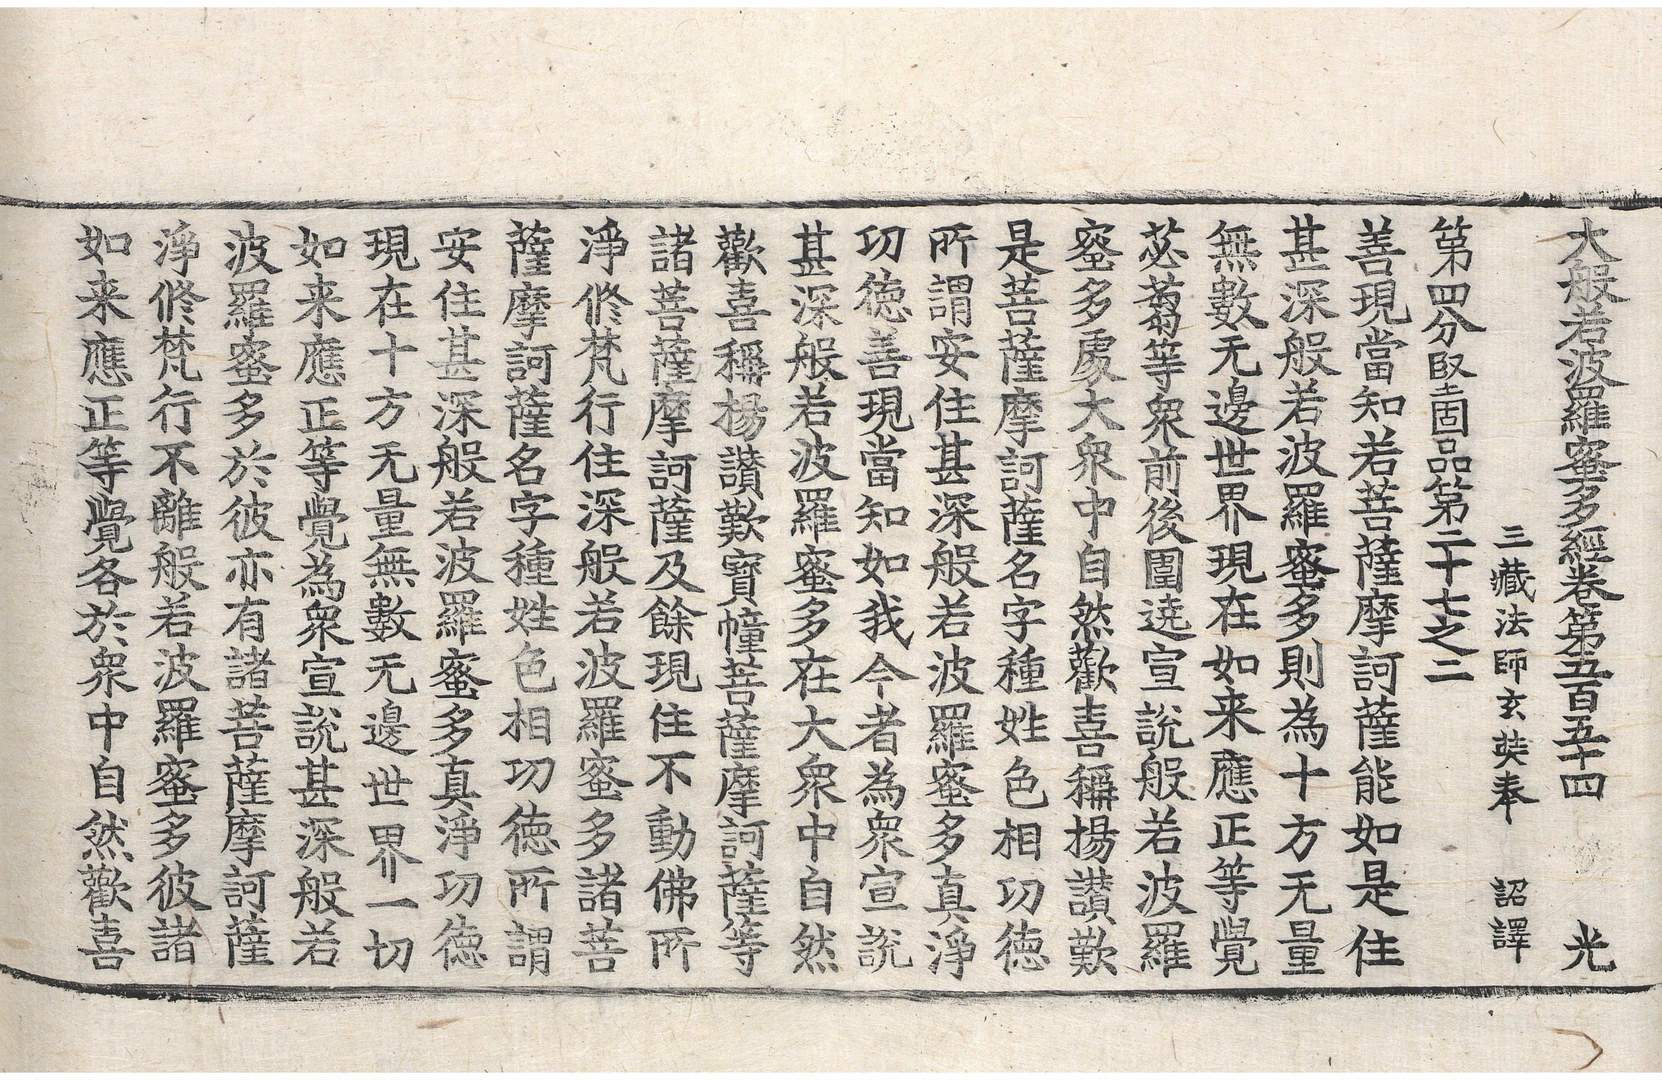 大般若波羅蜜多經卷第五百五十四　光
三藏法師玄奘奉　詔譯
第四分堅固品第二十七之二
善現當知若菩薩摩訶薩能如是住
甚深般若波羅蜜多則為十方无量
無數无邊世界現在如来應正等覺
苾蒭等衆前後圍遶宣說般若波羅
蜜多處大衆中自然歡喜稱揚讃歎
是菩薩摩訶薩名字種姓色相功德
所謂安住甚深般若波羅蜜多真淨
功德善現當知如我今者為衆宣說
甚深般若波羅蜜多在大衆中自然
歡喜稱揚讃歎寶幢菩薩摩訶薩等
諸菩薩摩訶薩及餘現住不動佛所
淨修梵行住深般若波羅蜜多諸菩
薩摩訶薩名字種姓色相功德所謂
安住甚深般若波羅蜜多真淨功德
現在十方无量無數无邊世界一切
如来應正等覺為衆宣說甚深般若
波羅蜜多於彼亦有諸菩薩摩訶薩
淨修梵行不離般若波羅蜜多彼諸
如来應正等覺各於衆中自然歡喜